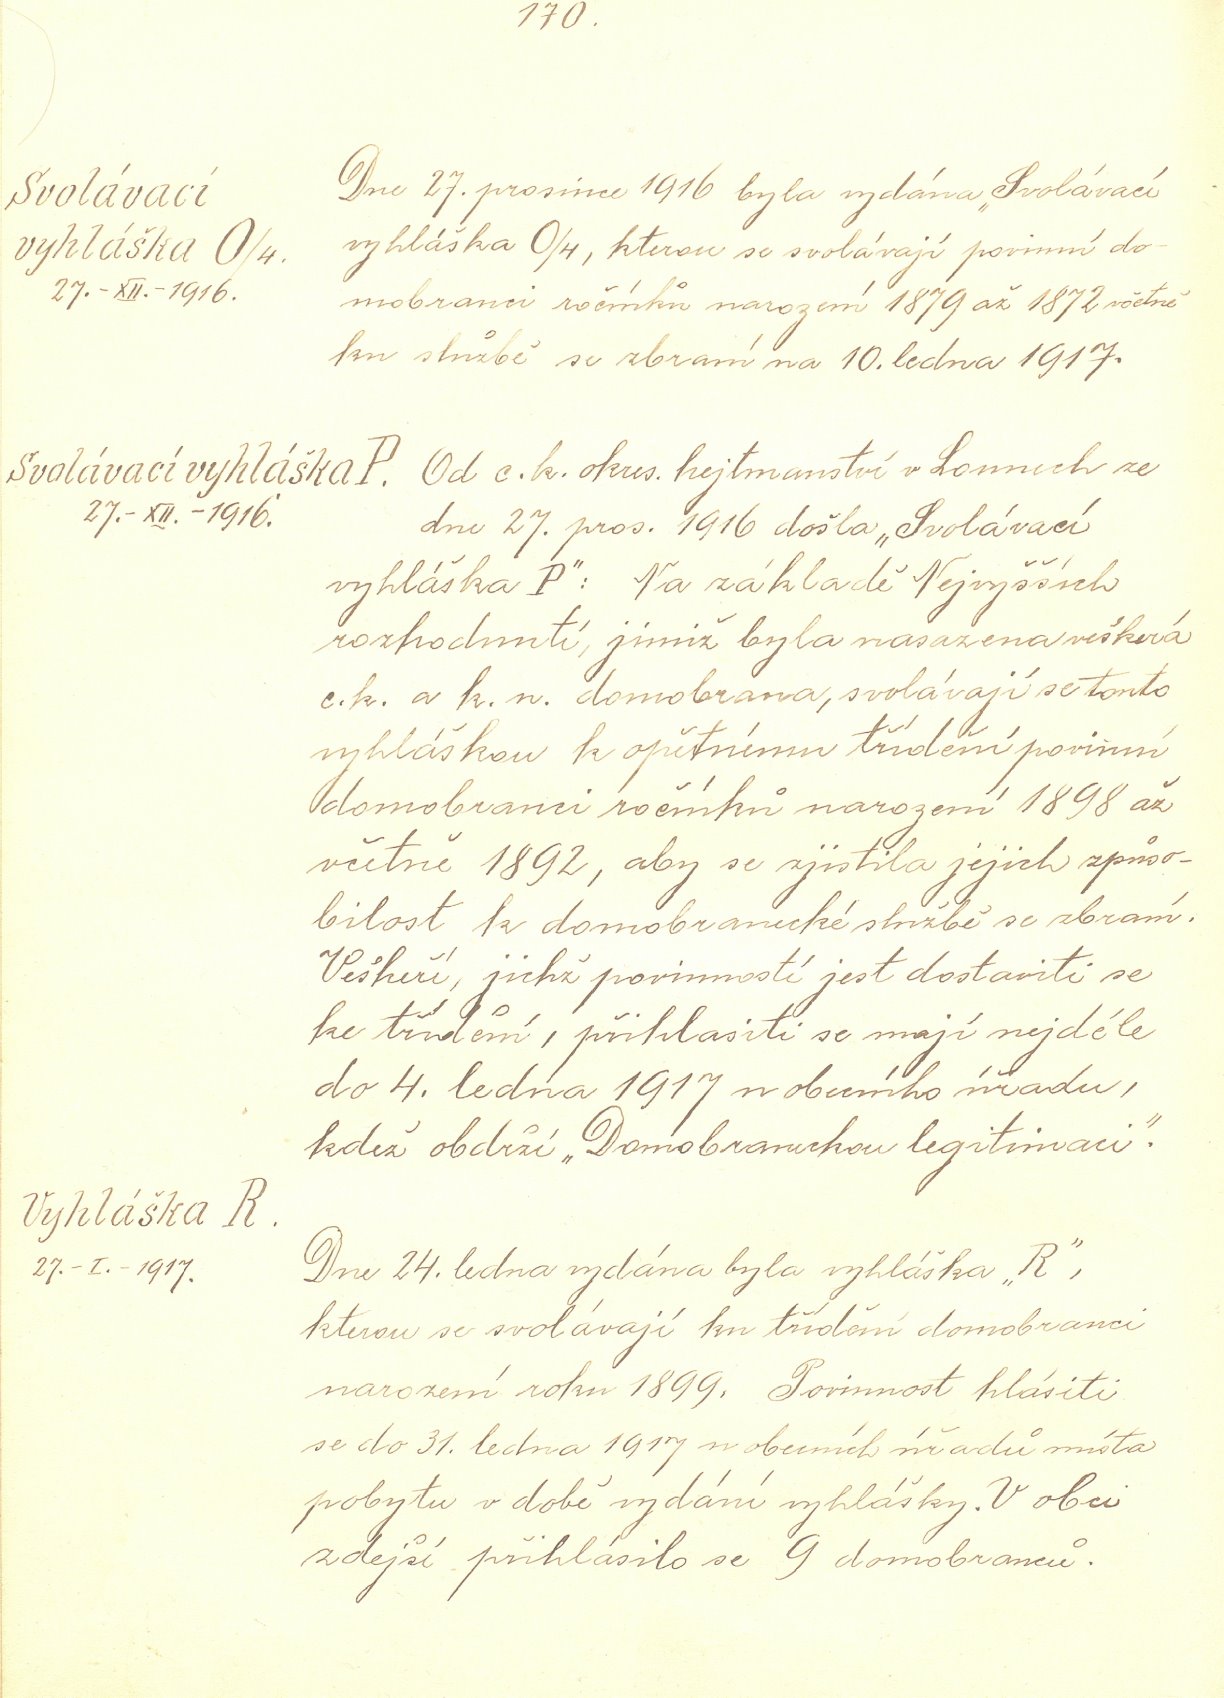 170.
Svolávací
vyhláška O/4.
27.-XII.-1916.
Dne 27. prosince 1916 byla vydána „Svolávací
vyhláška O/4, kterou se svolávají povinní do-
mobranci ročníků narození 1879 až 1872 včetně
ku službě se zbraní na 10. ledna 1917.
Svolávací vyhláška P.
27.-XII.-1916.
Od c.k. okres. hejtmanství v Lounech ze
dne 27. pros. 1916 došla „Svolávací
vyhláška P“: Na základě Nejvyšších
rozhodnutí, jimiž byla nasazena veškerá
c.k. a k.u. domobrana, svolávají se touto
vyhláškou k opětnému třídění povinní
domobranci ročníků narození 1898 až
včetně 1892, aby se zjistila jejich způso-
bilost k domobranecké službě se zbraní.
Veškeří, jichž povinností jest dostaviti se
ke třídění, přihlasiti se mají nejdéle
do 4. ledna 1917 u obecního úřadu,
kdež obdrží „Domobraneckou legitimaci“.
Vyhláška R.
27.-I.-1917.
Dne 24. ledna vydána byla vyhláška „R“,
kterou se svolávají ku třídění domobranci
narození roku 1899. Povinnost hlásiti
se do 31. ledna 1917 u obecních úřadů místa
pobytu v době vydání vyhlášky. V obci
zdejší přihlásilo se 9 domobranců.